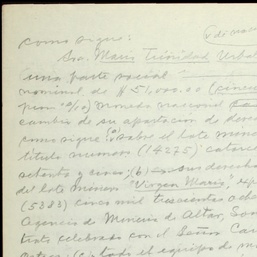 como sigue:
Sra. María Trinidad Urbal
una parte social
nominal de $51,000.00 (cincue
moneda nacional
cambio de su aportación de derec
como sigue: (a) sobre el lote mine
título número (14275) catorce
setenta y cinco; (b) sus derechos
del lote minero "Virgen María", exp
(5383) cinco mil trescientos oche
Agencia de Minería de Altar, Son
trato celebrado con el Señor Car
todo el equipo de m